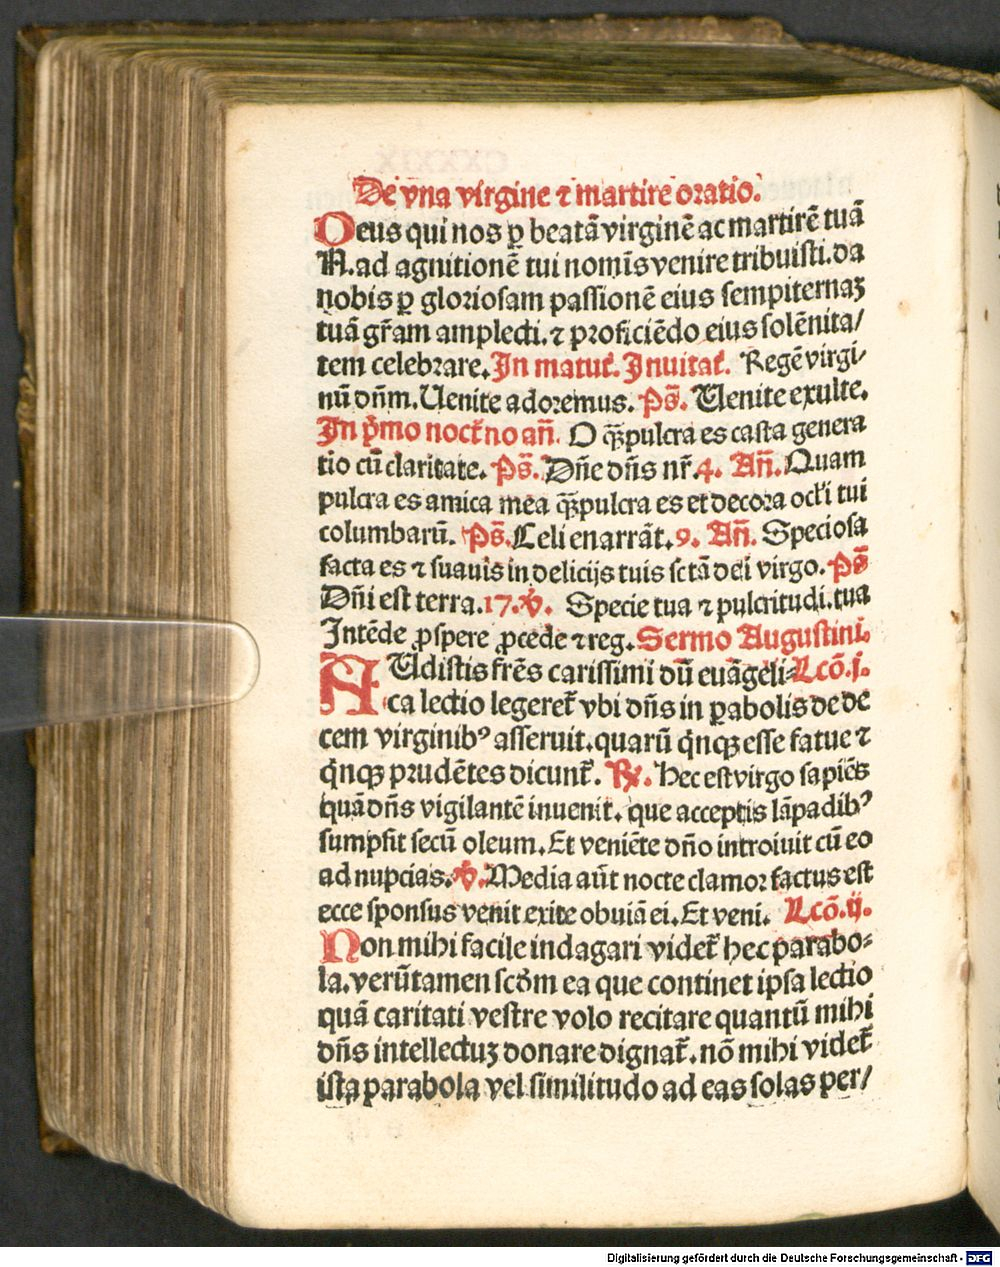 De vna virgine ⁊ martire oratio.
Deus qui nos ꝑ beatā virginē ac martirē tuā
N. ad agnitionē tui nomīs venire tribuisti. da
nobis ꝑ gloriosam passionē eius sempiternaꝫ
tuā gr̄am amplecti. ⁊ proficiēdo eius solēnita/
tem celebrare. In matut̄. Inuitat̄. Regē virgi/
nū dn̄m. Uenite adoremus. Ps̄. Uenite exulte.
In p̄mo noct̄no an̄. O q̄ꝫ pulcra es casta genera
tio cū claritate. Ps̄. Dn̄e dn̄s nr̄. 4. An̄. Quam
pulcra es amica mea q̄ꝫ pulcra es et decora ocl̄i tui
columbarū. Ps̄. Celi enarrāt. 9. An̄. Speciosa
facta es ⁊ suauis in delicijs tuis sctā dei virgo. Ps̄
Dn̄i est terra. 17. ℣. Specie tua ⁊ pulcritudi. tua
Intēde ꝓspere ꝓcede ⁊ reg. Sermo Augustini.
AUdistis frēs carissimi dū euāgeli⸗ Lcō. j.
ca lectio legeret̄ vbi dn̄s in ꝑabolis de de
cem virginibꝰ asseruit. quarū q̄nqꝫ esse fatue ⁊
q̄nqꝫ prudētes dicunt̄. ℟. Hec est virgo sapiēs
quā dn̄s vigilantē inuenit. que acceptis lāpadibꝰ
sumpsit secū oleum. Et veniēte dn̄o introiuit cū eo
ad nupcias. ℣. Media aūt nocte clamor factus est
ecce sponsus venit exite obuiā ei. Et veni. Lcō. ij.
Non mihi facile indagari videt̄ hec parabo⸗
la. verūtamen scd̄m ea que continet ipsa lectio
quā caritati vestre volo recitare quantū mihi
dn̄s intellectuꝫ donare dignat̄. nō mihi videt̄
ista parabola vel similitudo ad eas solas per/
Digitalisierung gefördert durch die Deutsche Forschungsgemeinschaft - DFG